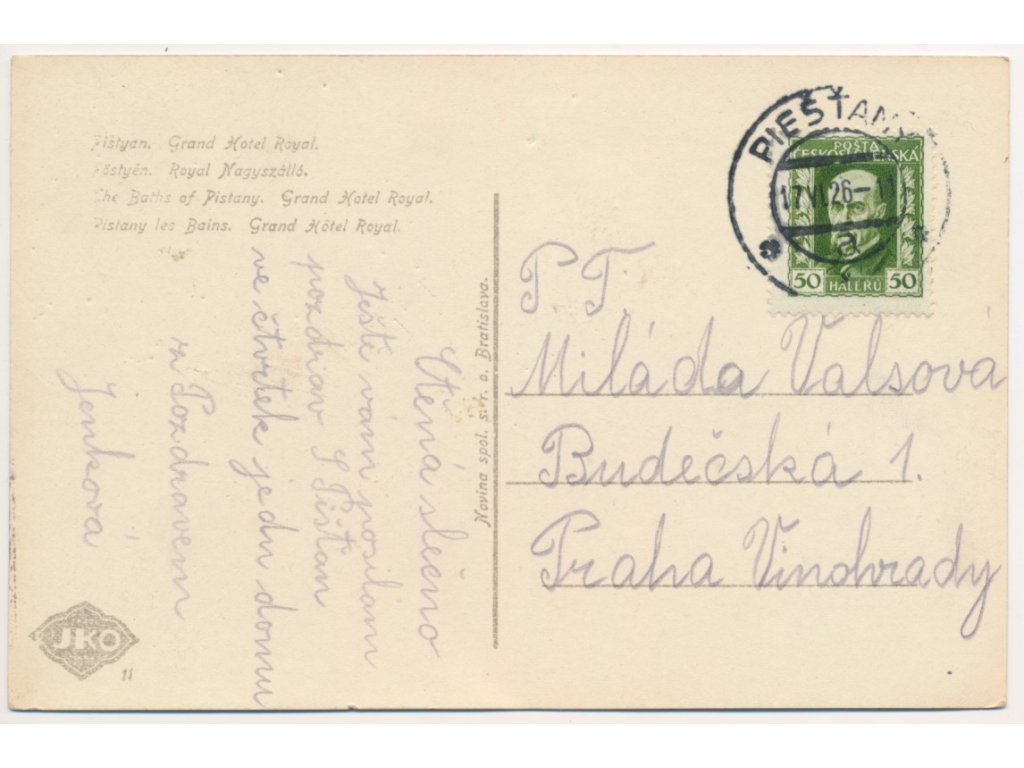 Pištyan. Grand Hotel Royal.
Pöstyén. Royal Nagyszálló.
The Baths of Pistany. Grand Hotel Royal.
Pistany les Bains. Grand Hôtel Royal.
Ctěná slečno
Ještě vám posílám
pozdrav S Pištan
ve čtvrtek jedu domu
za Pozdravem
Jenková
Novina spol. s. r. o. Bratislava.
PIEŠŤANY
17.VI.26-11
a
POŠTA
ČESKOSLOVENSKÁ
50 HALÉŘŮ 50
P. T.
Miláda Valsová
Budečská 1.
Praha Vinohrady
JKO
11